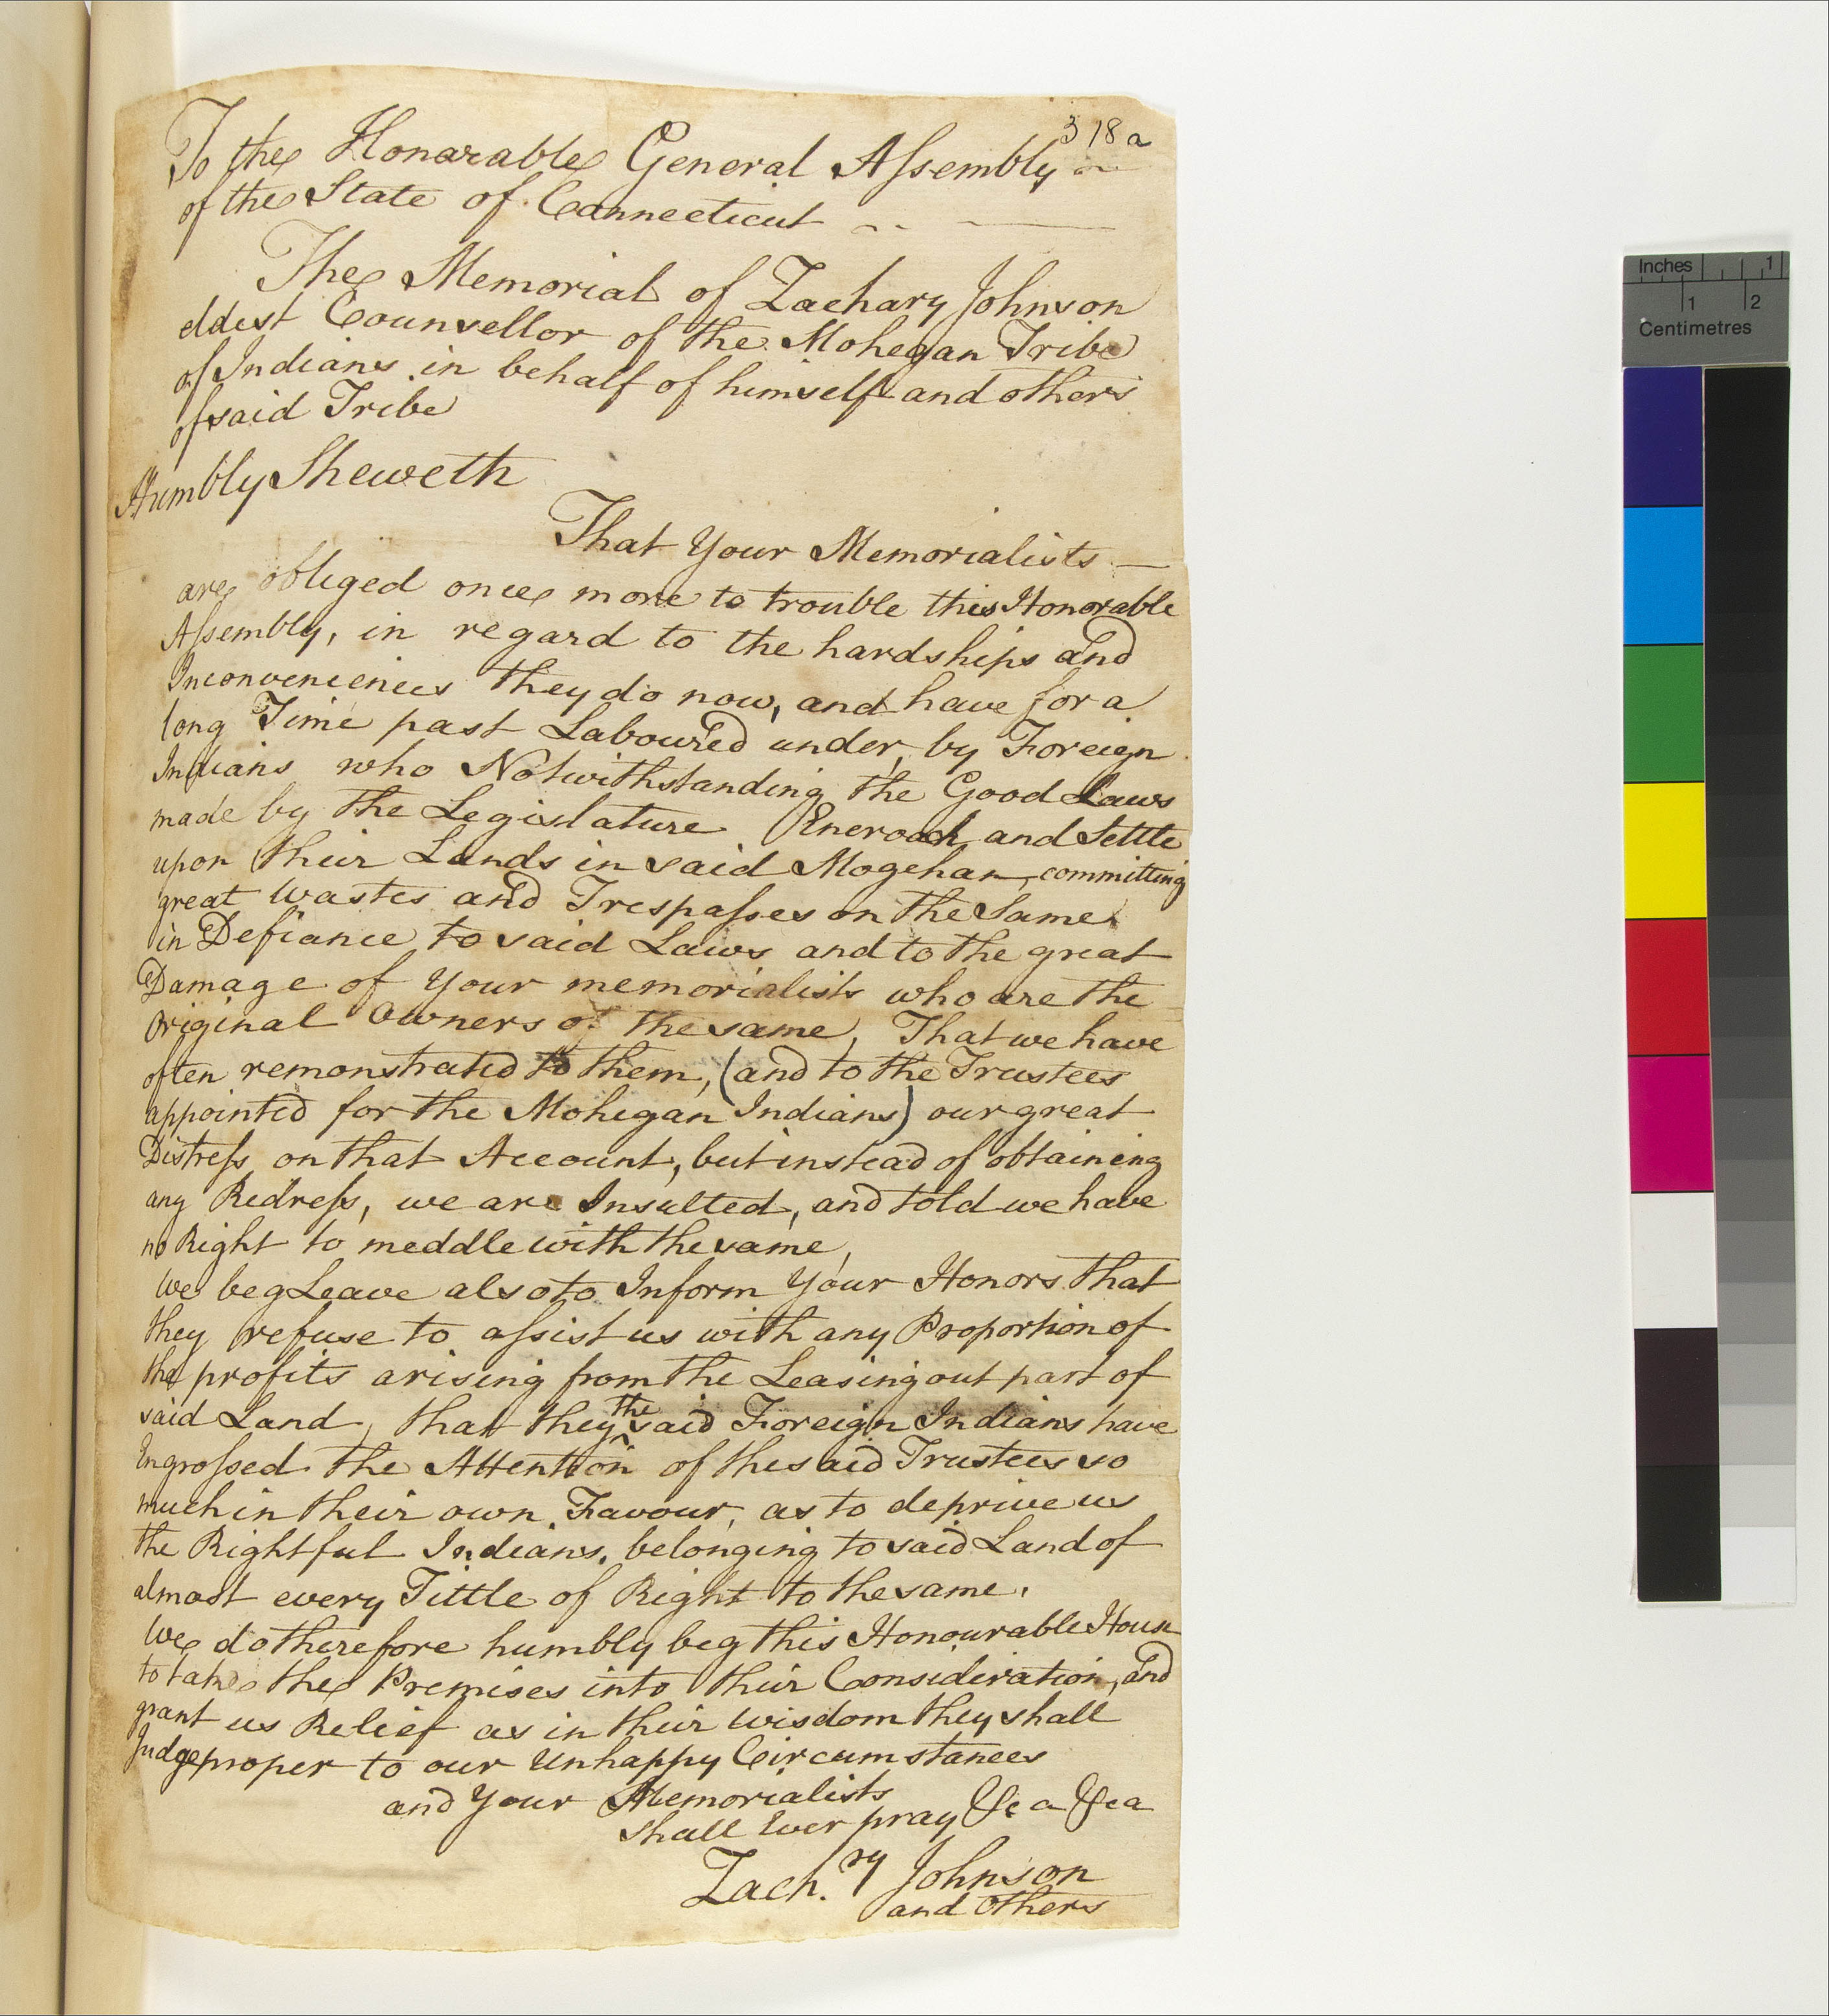 318a
To the Honarable General Assembly
of the State of Connecticut
The Memorial of Zachary Johnson
eldest Counsellor of the Mohegan Tribe
of Indians in behalf of himself and others
of said Tribe
Humbly Sheweth
That Your Memorialists
are obliged once more to trouble this Honorable
Assembly, in regard to the hardships and
Inconveniencies they do now, and have for a
long Time past Laboured under, by Foreign
Indians who Notwithstanding the Good Laws
made by the Legislature Encroach and Settle
upon their Lands in said Mogehan, committing
great Wastes and Trespasses on the Same
in Defiance to said Laws and to the great
Damage of Your memorialists who are the
original Owners of the same, That we have
often remonstrated to them, (and to the Trustees
appointed for the Mohegan Indians) our great
Distress on that Account, but instead of obtaining
any Redress, we are Insulted, and told we have
no Right to meddle with the same,
We beg Leave also to Inform Your Honors that
they refuse to assist us with any Proportion of
the profits arising from the Leasing out part of
said Land, that they the said Foreign Indians have
Ingrossed the Attention of the said Trustees so
much in their own Favour, as to deprive us
the Rightful Indians, belonging to said Land of
almost every Tittle of Right to the same.
We do therefore humbly beg this Honourable House
to take the Premises into their Consideration, and
grant us Relief as in their wisdom they shall
Judge proper to our Unhappy Circumstances
and Your Memorialists
shall Ever pray &ca &ca
Zach.ry Johnson
and others
Inches 1
1 2
Centimetres